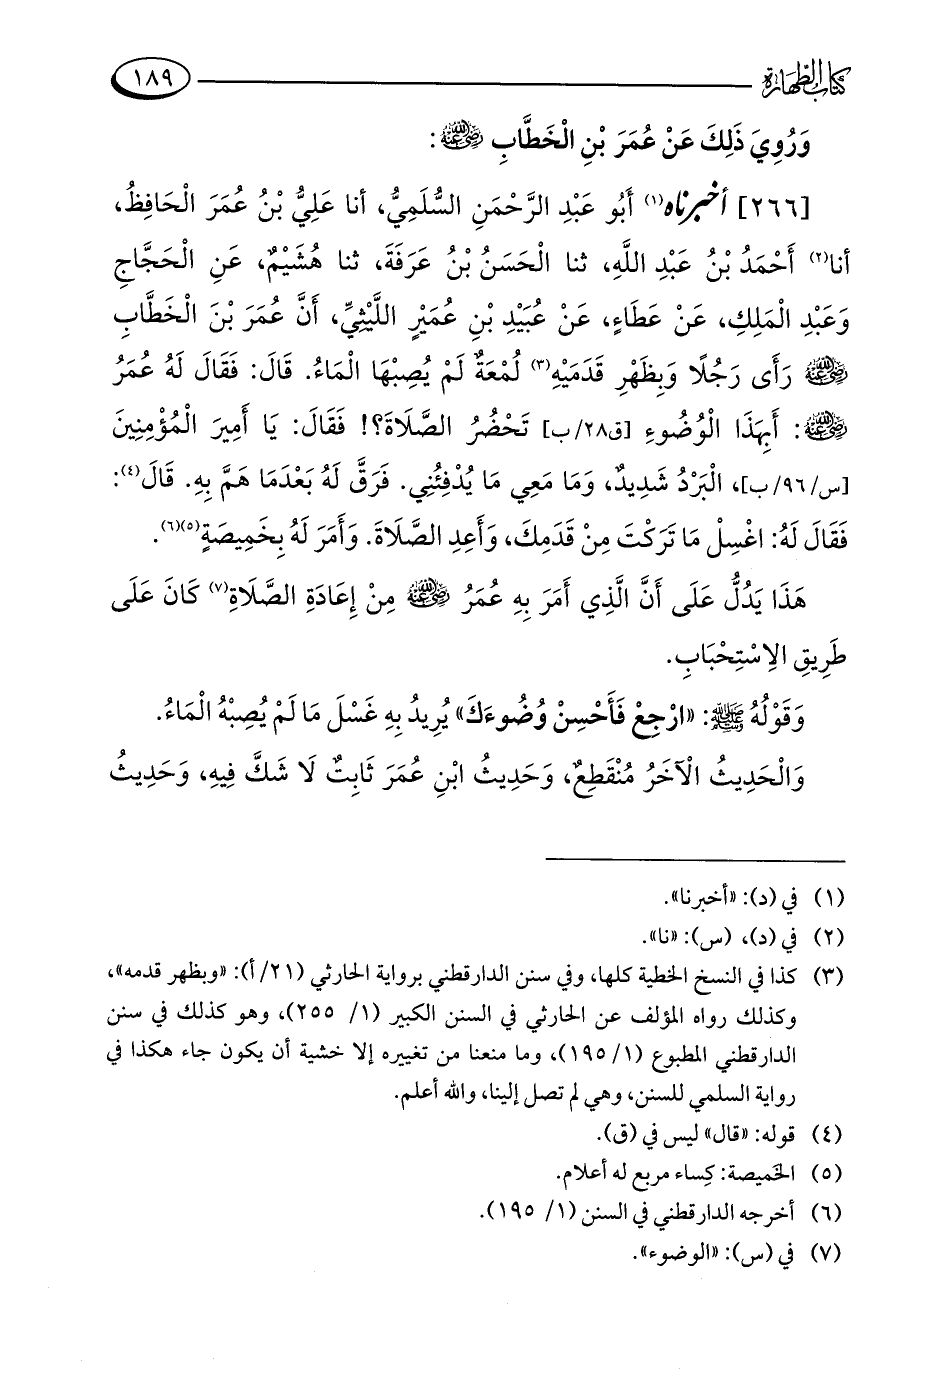 كتاب الطهارة
١٨٩
وَرُوِيَ ذَلِكَ عَنْ عُمَرَ بْنِ الْخَطَّابِ رضي الله عنه:
[٢٦٦] أخبرناه(١) أَبُو عَبْدِ الرَّحْمَنِ السُّلَمِيُّ، أنا عَلِيُّ بْنُ عُمَرَ الْحَافِظُ،
أنا(٢) أَحْمَدُ بْنُ عَبْدِ اللَّهِ، ثنا الْحَسَنُ بْنُ عَرَفَةَ، ثنا هُشَيْمٌ، عَنِ الْحَجَّاجِ
وَعَبْدِ الْمَلِكِ، عَنْ عَطَاءٍ، عَنْ عُبَيْدِ بْنِ عُمَيْرٍ اللَّيْثِيِّ، أَنَّ عُمَرَ بْنَ الْخَطَّابِ
رضي الله عنه رَأَى رَجُلًا وَبِظَهْرِ قَدَمَيْهِ(٣) لُمْعَةٌ لَمْ يُصِبْهَا الْمَاءُ. قَالَ: فَقَالَ لَهُ عُمَرُ
رضي الله عنه: أَبِهَذَا الْوُضُوءِ [ق٢٨/ب] تَحْضُرُ الصَّلَاةَ؟! فَقَالَ: يَا أَمِيرَ الْمُؤْمِنِينَ
[س/٩٦/ب]، الْبَرْدُ شَدِيدٌ، وَمَا مَعِي مَا يُدْفِئُنِي. فَرَقَّ لَهُ بَعْدَمَا هَمَّ بِهِ. قَالَ(٤):
فَقَالَ لَهُ: اغْسِلْ مَا تَرَكْتَ مِنْ قَدَمِكَ، وَأَعِدِ الصَّلَاةَ. وَأَمَرَ لَهُ بِخَمِيصَةٍ(٥)(٦).
هَذَا يَدُلُّ عَلَى أَنَّ الَّذِي أَمَرَ بِهِ عُمَرُ رضي الله عنه مِنْ إِعَادَةِ الصَّلَاةِ(٧) كَانَ عَلَى
طَرِيقِ الِاسْتِحْبَابِ.
وَقَوْلُهُ ﷺ: «ارْجِعْ فَأَحْسِنْ وُضُوءَكَ» يُرِيدُ بِهِ غَسْلَ مَا لَمْ يُصِبْهُ الْمَاءُ.
وَالْحَدِيثُ الْآخَرُ مُنْقَطِعٌ، وَحَدِيثُ ابْنِ عُمَرَ ثَابِتٌ لَا شَكَّ فِيهِ، وَحَدِيثُ
(١) في (د): «أخبرنا».
(٢) في (د)، (س): «نا».
(٣) كذا في النسخ الخطية كلها، وفي سنن الدارقطني برواية الحارثي (٢١/أ): «وبظهر قدمه»،
وكذلك رواه المؤلف عن الحارثي في السنن الكبير (١/ ٢٥٥)، وهو كذلك في سنن
الدارقطني المطبوع (١/ ١٩٥)، وما منعنا من تغييره إلا خشية أن يكون جاء هكذا في
رواية السلمي للسنن، وهي لم تصل إلينا، والله أعلم.
(٤) قوله: «قال» ليس في (ق).
(٥) الخميصة: كِساء مربع له أعلام.
(٦) أخرجه الدارقطني في السنن (١/ ١٩٥).
(٧) في (س): «الوضوء».